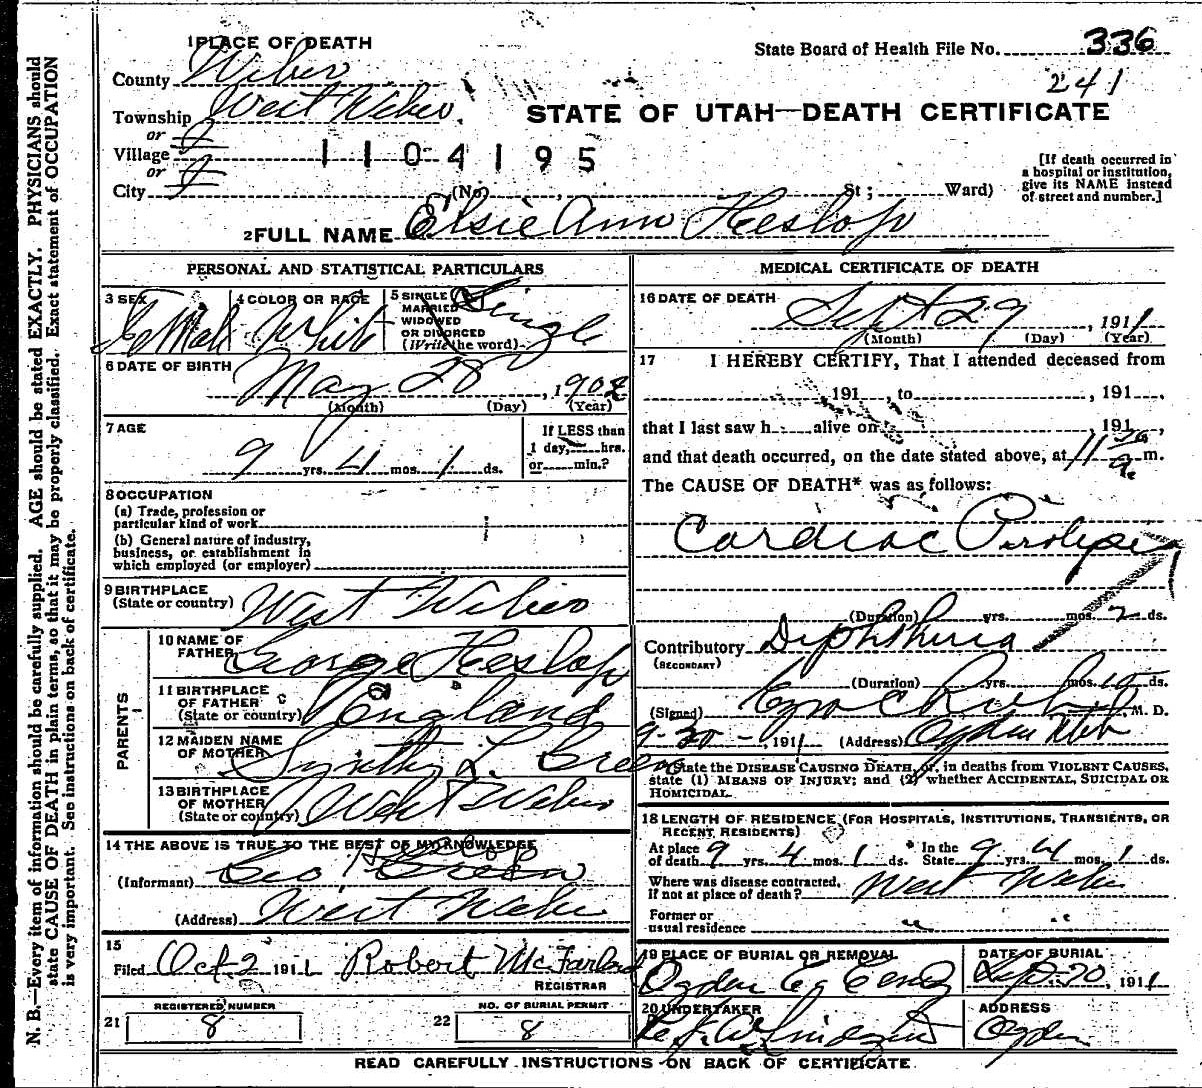 1 PLACE OF DEATH
State Board of Health File No. 336
County Weber
241
Township West Weber
STATE OF UTAH—DEATH CERTIFICATE
or
Village
1104195
or
City (No. St; Ward)
[If death occurred in
a hospital or institution,
give its NAME instead
of street and number.]
2 FULL NAME Elsie Ann Heslop
PERSONAL AND STATISTICAL PARTICULARS
3 SEX Female
4 COLOR OR RACE White
5 SINGLE
MARRIED
WIDOWED
OR DIVORCED
(Write the word) Single
6 DATE OF BIRTH
May 28, 1902
(Month) (Day) (Year)
7 AGE
9 yrs. 4 mos. 1 ds.
If LESS than
1 day, hrs.
or min.?
8 OCCUPATION
(a) Trade, profession or
particular kind of work
(b) General nature of industry,
business, or establishment in
which employed (or employer)
9 BIRTHPLACE
(State or country) West Weber
PARENTS
10 NAME OF
FATHER George Heslop
11 BIRTHPLACE
OF FATHER
(State or country) England
12 MAIDEN NAME
OF MOTHER L. Green
13 BIRTHPLACE
OF MOTHER
(State or country) West Weber
14 THE ABOVE IS TRUE TO THE BEST OF MY KNOWLEDGE
(Informant) Geo Heslop
(Address) West Weber
15
Filed Oct 2 1911 Robert McFarland
REGISTRAR
REGISTERED NUMBER
21 8
NO. OF BURIAL PERMIT
22 8
MEDICAL CERTIFICATE OF DEATH
16 DATE OF DEATH
Sept 29, 1911
(Month) (Day) (Year)
17 I HEREBY CERTIFY, That I attended deceased from
191 , to , 191 ,
that I last saw h alive on , 191 ,
and that death occurred, on the date stated above, at 11 a. m.
The CAUSE OF DEATH* was as follows:
Cardiac
(Duration) yrs. mos. 2 ds.
Contributory Diphtheria
(SECONDARY)
(Duration) yrs. mos. 10 ds.
(Signed) Ezra C Rich, M. D.
9-30-, 1911 (Address) Ogden Utah
*State the DISEASE CAUSING DEATH, or, in deaths from VIOLENT CAUSES,
state (1) MEANS OF INJURY; and (2) whether ACCIDENTAL, SUICIDAL OR
HOMICIDAL.
18 LENGTH OF RESIDENCE (FOR HOSPITALS, INSTITUTIONS, TRANSIENTS, OR
RECENT RESIDENTS)
At place
of death 9 yrs. 4 mos. 1 ds. In the
State 9 yrs. 4 mos. 1 ds.
Where was disease contracted,
if not at place of death? West Weber
Former or
usual residence " "
19 PLACE OF BURIAL OR REMOVAL
Ogden Cy Cem
DATE OF BURIAL
Sep 30, 1911
20 UNDERTAKER
ADDRESS
Ogden
READ CAREFULLY INSTRUCTIONS ON BACK OF CERTIFICATE
N. B.—Every item of information should be carefully supplied. AGE should be stated EXACTLY. PHYSICIANS should
state CAUSE OF DEATH in plain terms, so that it may be properly classified. Exact statement of OCCUPATION
is very important. See instructions on back of certificate.